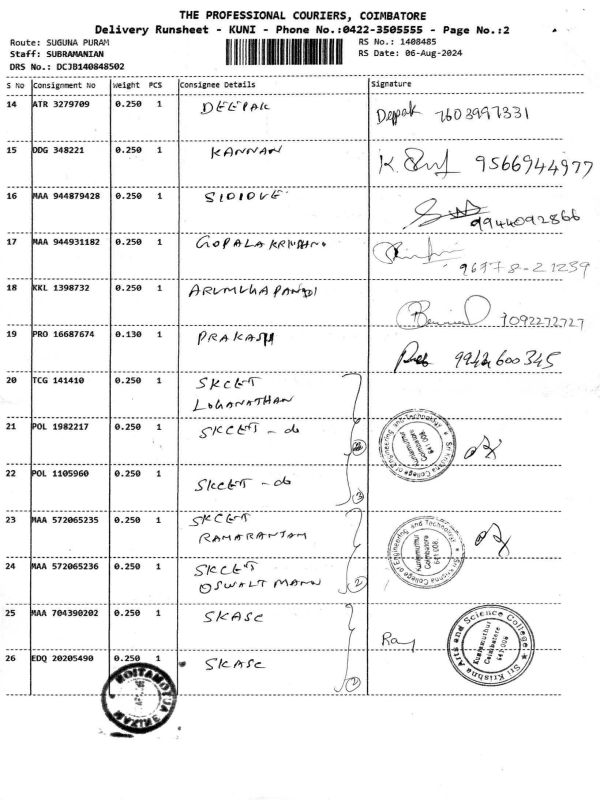 THE PROFESSIONAL COURIERS, COIMBATORE
Delivery Runsheet - KUNI - Phone No.:0422-3505555 - Page No.:2
Route: SUGUNA PURAM RS No.: 1408485
Staff: SUBRAMANIAN RS Date: 06-Aug-2024
DRS No.: DCJB140848502
S No Consignment No Weight PCS Consignee Details Signature
14 ATR 3279709 0.250 1 DEEPAK Deepak 7603997331
15 DDG 348221 0.250 1 KANNAN K. 9566944977
16 MAA 944879428 0.250 1 9944092866
17 MAA 944931182 0.250 1 GOPALA KRISHNN 96778-21239
18 KKL 1398732 0.250 1 ARUMUGA PANDI 7092272727
19 PRO 16687674 0.130 1 PRAKASH
20 TCG 141410 0.250 1 SKCET
LOGANATHAN
21 POL 1982217 0.250 1 SKCET - do
22 POL 1105960 0.250 1 SKCET - do
23 MAA 572065235 0.250 1 SKCET
RAMARANJAM
24 MAA 572065236 0.250 1 SKCET
OSWALT MANN
25 MAA 704390202 0.250 1 SKASC Raj
26 EDQ 20205490 0.250 1 SKASC
Sri Krishna College of Engineering and Technology
Kuniamuthur
Coimbatore
641 008.
Sri Krishna College of Engineering and Technology
Kuniamuthur
Coimbatore
641 008.
Sri Krishna Arts and Science College
Kuniamuthur
Coimbatore
641 008